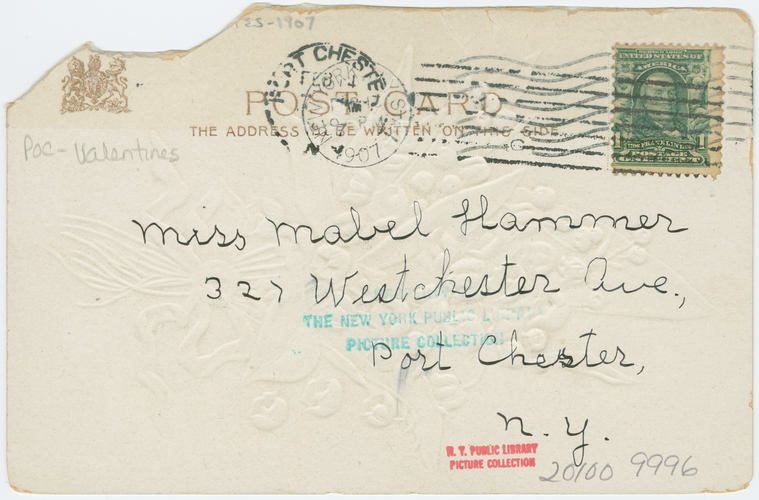 ES-1907
PORT CHESTER
NEW YORK
1907
UNITED STATES OF AMERICA
1 FRANKLIN 1
POSTAGE
ONE CENT
POST CARD
THE ADDRESS TO BE WRITTEN ON THIS SIDE
POC - Valentines
Miss Mabel Hammer
327 Westchester Ave.,
THE NEW YORK PUBLIC LIBRARY
PICTURE COLLECTION
Port Chester,
N. Y.
N. Y. PUBLIC LIBRARY
PICTURE COLLECTION
20100 9996